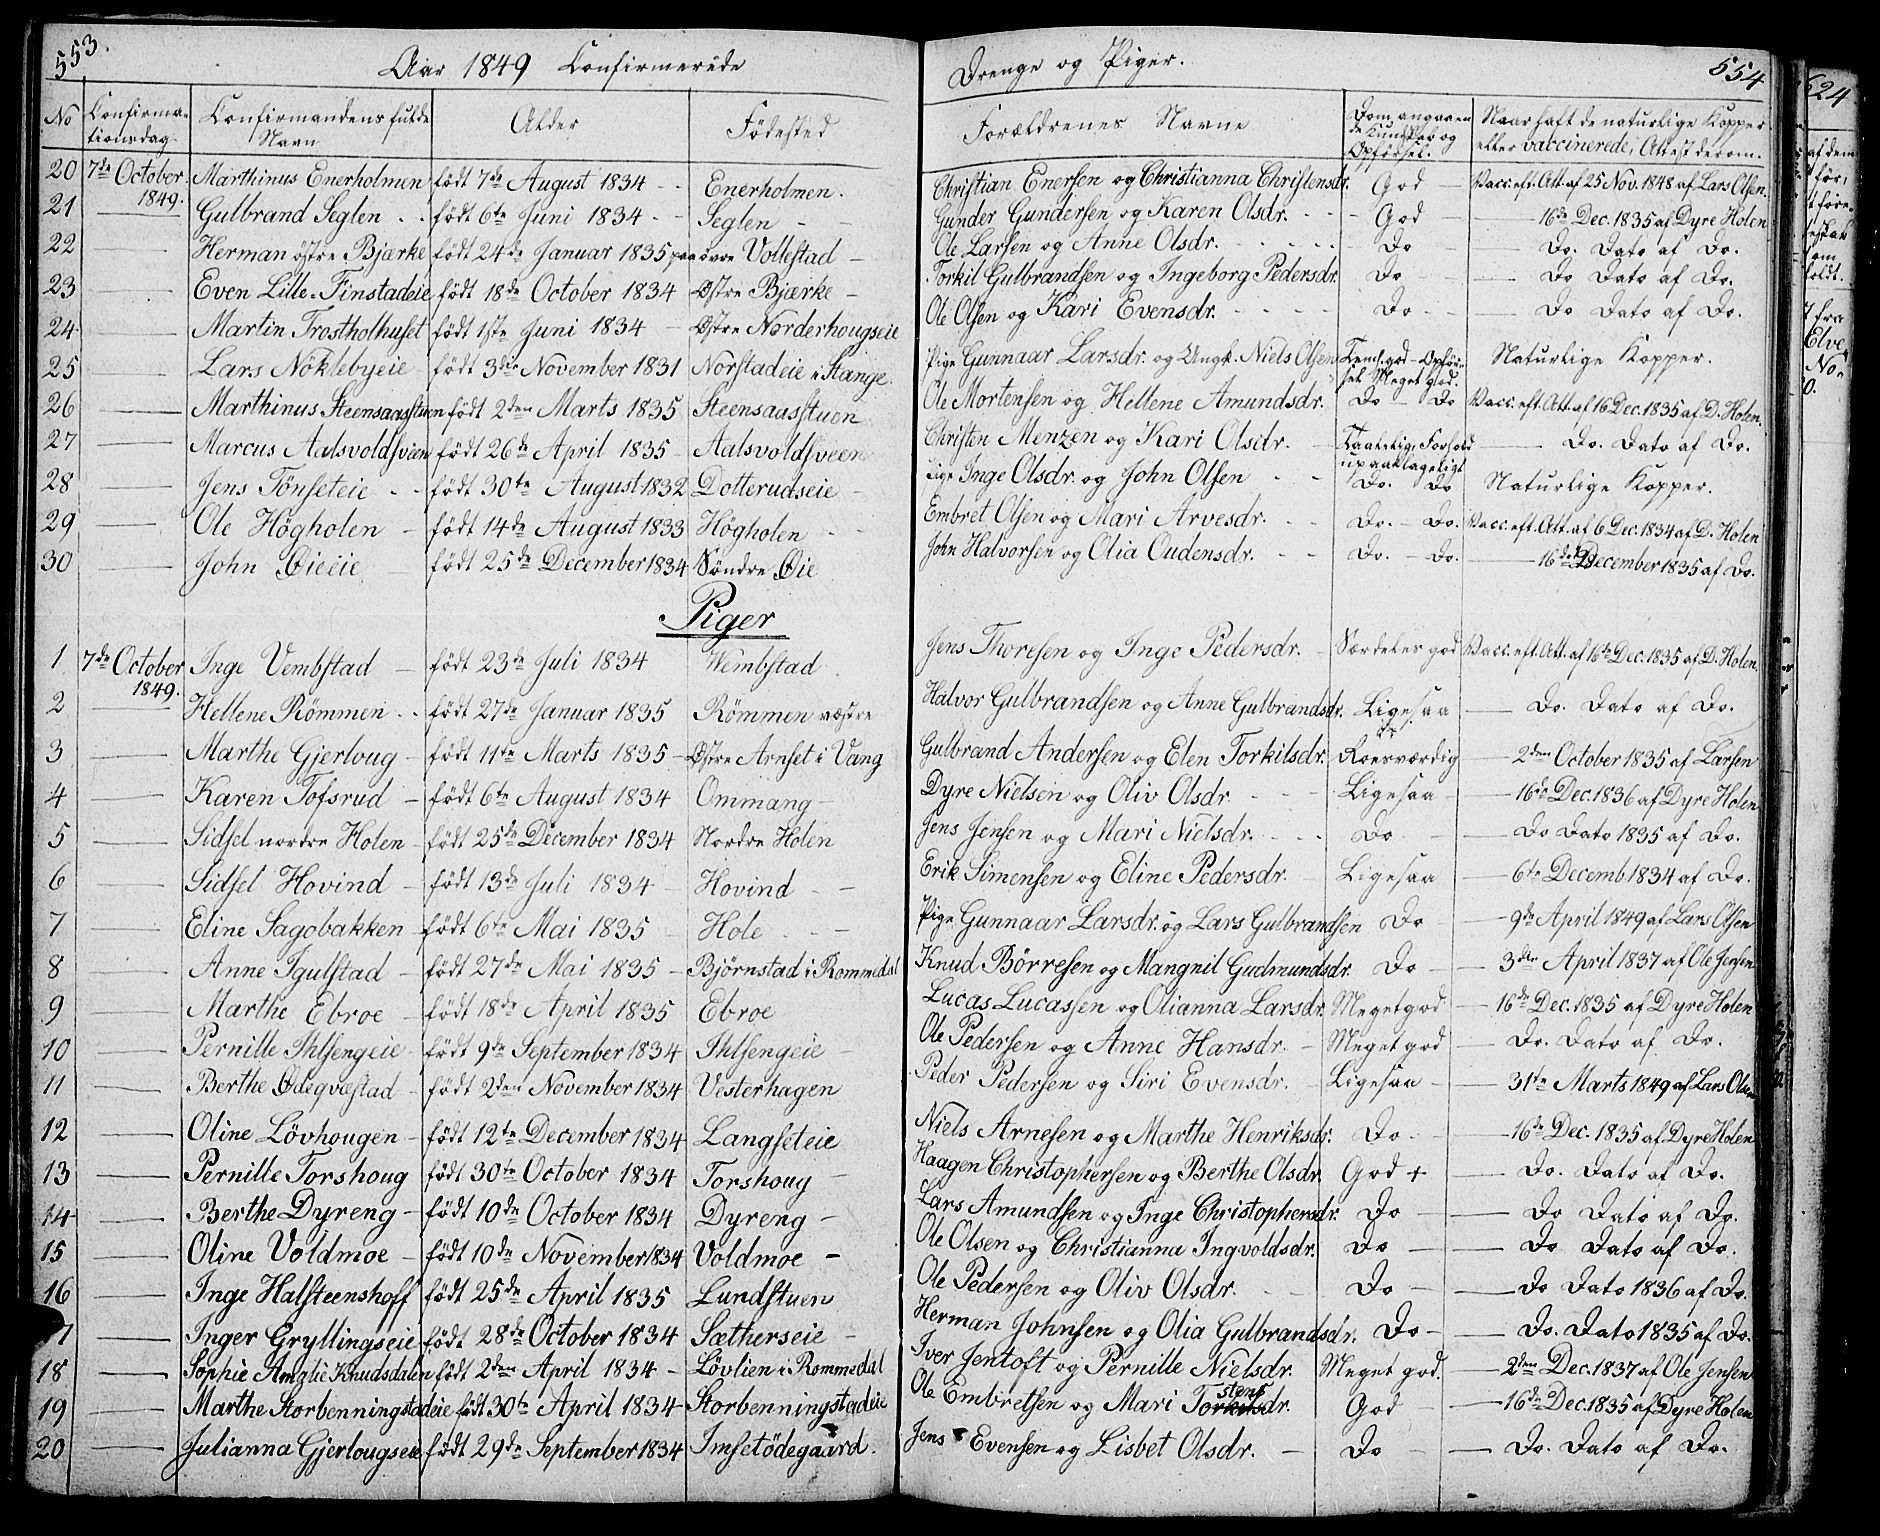 553.
Aar 1849 Confirmerede
Drenge og Piger.
554
624
No
Confirma-
tionsdag
Confirmandens fulde
Navn
Alder
Födested
Forældrenes Navne
Dom angaaen
de Kundskab og
Opförsel.
Naar haft de naturlige Kopper
eller vaccinerede; Attest derom.
20 7de October Marthinus Enerholmen födt 7de August 1834 - - Enerholmen. Christian Enersen og Christianna Christensdr. God - Vacc. eft. Att. af 25 Nov. 1848 af Lars Olsen.
1849.
21 Gulbrand Seglen - - födt 6te Juni 1834 - - Seglen - Gunder Gundersen og Karen Olsdr. - - - God - 16de Dec. 1835 af Dyre Holen
22 Herman östre Bjærke födt 24de Januar 1835 paa övre Vollestad - Ole Larsen og Anne Olsdr. - - - Do - Do. Dato af Do.
23 Even Lille-Finstadeie födt 18de October 1834 - Östre Bjærke - Torkil Gulbrandsen og Ingeborg Pedersdr. Do - Do Dato af Do.
24 Martin Trostholhuset födt 1ste Juni 1834 - Östre Norderhougseie Ole Olsen og Kari Evensdr. - - - Do - Do Dato af Do.
25 Lars Nöklebyeie födt 3die November 1831 Norstadeie i Stange. Pige Gunnaar Larsdr. og Ungk. Niels Olsen Teml. god - Opför- Naturlige Kopper.
sel Meget god.
26 Marthinus Steensaasstuen födt 2den Marts 1835 Steensaasstuen Ole Mortensen og Hellene Amundsdr. Do - Do Vacc. eft. Att. af 16 Dec. 1835 af D. Holen.
27 Marcus Aalsvoldsveen födt 26de April 1835 - Aalsvoldsveen Christen Menzen og Kari Olsdr. - Taalelig, Forhold Do. Dato af Do.
upaaklageligt
28 Jens Tönseteie - - födt 30te August 1832 Dotterudseie - Pige Inge Olsdr. og John Olsen - - Do. Do Naturlige Kopper.
29 Ole Högholen - födt 14de August 1833 Högholen - Embret Olsen og Mari Arvesdr. - - Do. - Do. Vacc. eft. Att. af 6 Dec. 1834 af D. Holen
30 John Öieeie - födt 25de December 1834 Söndre Öie John Halvorsen og Olia Oudensdr. - - Do. - Do. 16de December 1835 af Do.
Piger
1 7de October Inge Vembstad - födt 23de Juli 1834 Wembstad Jens Thoresen og Inge Pedersdr. - Særdeles god Vacc. eft. Att. af 16de Dec. 1835 af D. Holen.
1849.
2 Hellene Römmen - - födt 27de Januar 1835 Römmen væstre Halvor Gulbrandsen og Anne Gulbrandsdr. Ligesaa Do. Dato af Do.
3 Marthe Gjerloug - födt 11te Marts 1835 - Östre Arnset i Vang Gulbrand Andersen og Elen Torkilsdr. Roesværdig 2den October 1835 af Larsen
4 Karen Tofsrud - födt 6te August 1834 Ommang - Dyre Nielsen og Oliv Olsdr. - - Ligesaa - 16de Dec. 1836 af Dyre Holen
5 Sidsel nordre Holen - födt 25de December 1834 Nordre Holen Jens Jensen og Mari Nielsdr. - - - Do. Do Dato 1835 af Do.
6 Sidsel Hovind - födt 13de Juli 1834 - Hovind - - Erik Simensen og Eline Pedersdr. - Ligesaa 6te Decemb. 1834 af Do.
7 Eline Sagobakken - födt 6te Mai 1835 - Hole - - Pige Gunnaar Larsdr. og Lars Gulbrandsen Do - 9de April 1849 af Lars Olsen
8 Anne Igulstad - födt 27de Mai 1835 - Björnstad i Rommedal Knud Börresen og Mangnil Gudmundsdr. Do - 3den April 1837 af Ole Jensen
9 Marthe Ebroe - födt 18de April 1835 Ebroe Lucas Lucassen og Olianna Larsdr. Meget god 16de Dec. 1835 af Dyre Holen
10 Pernille Ihlsengeie födt 9de September 1834 Ihlsengeie - Ole Pedersen og Anne Hansdr. - Meget god Do. Dato af Do.
11 Berthe Ödeqvæstad - födt 2den November 1834 Vesterhagen Peder Pedersen og Siri Evensdr. - Ligesaa - 31te Marts 1849 af Lars Olsen
12 Oline Lövhougen - födt 12te December 1834 Langseteie Niels Arnesen og Marthe Henriksdr. Do. 16de Dec. 1835 af Dyre Holen
13 Pernille Torshoug födt 30te October 1834 Torshoug - Haagen Christophersen og Berthe Olsdr. God + Do. Dato af Do.
14 Berthe Dyreng - födt 10de October 1834 Dyreng - Lars Amundsen og Inge Christophersdr. Do - Do Dato af Do.
15 Oline Voldmoe - födt 10de November 1834 Voldmoe - Ole Olsen og Christianna Ingvoldsdr. Do - Do Dato af Do.
16 Inge Halsteenshoff födt 25de April 1835 Lundstuen Ole Pedersen og Oliv Olsdr. - - Do - Do Dato 1836 af Do.
7 Inger Gryllingseie födt 28de October 1834 Sætherseie - Herman Johnsen og Olia Gulbrandsdr. Do - Do. Dato 1835 af Do.
18 Sophie Amalie Knudsdalen födt 2den April 1834 - Lövlien i Rommedal Iver Jentoft og Pernille Nielsdr. Meget god. 2den Dec. 1837 af Ole Jensen
19 Marthe Storbenningstadeie födt 30te April 1834 - Storbenningstadeie Ole Embretsen og Mari Torstensdr. God - 16de Dec. 1835 af Dyre Holen
20 Julianna Gjerlougseie födt 29de September 1834 Imsetödegaard. Jens Evensen og Lisbet Olsdr. - Do - Do. Dato af Do.